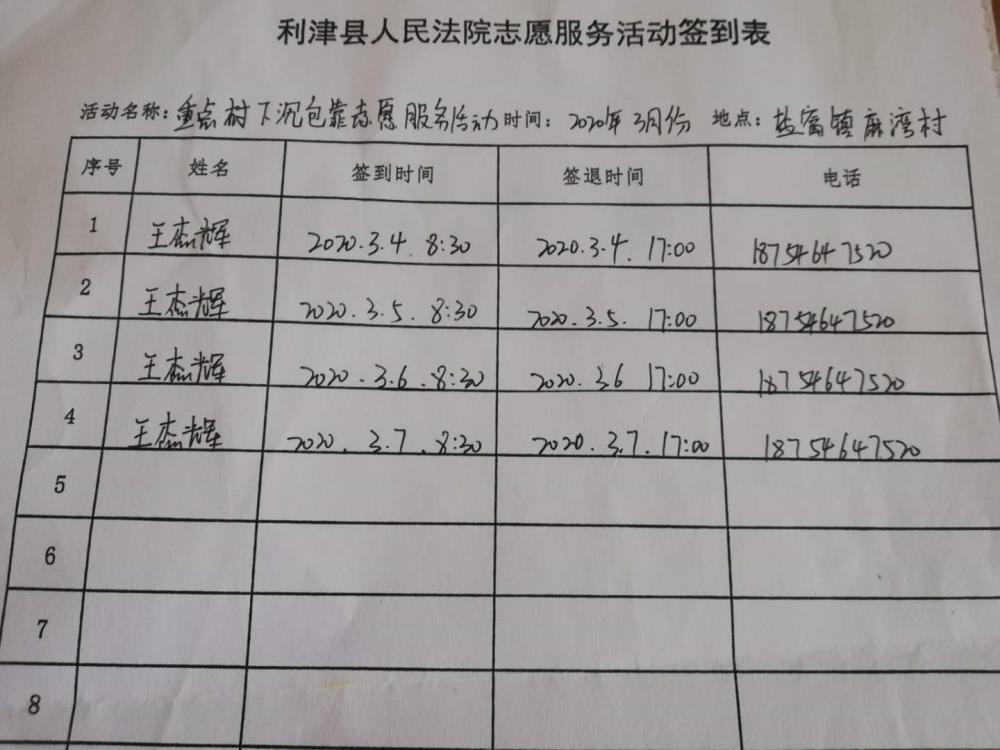 利津县人民法院志愿服务活动签到表
活动名称：重点村下沉包靠志愿服务活动 时间：2020年3月份 地点：盐窝镇麻湾村
序号 姓名 签到时间 签退时间 电话
1 王杰辉 2020.3.4. 8:30 2020.3.4. 17:00 18754647520
2 王杰辉 2020.3.5. 8:30 2020.3.5. 17:00 18754647520
3 王杰辉 2020.3.6.8:30 2020.3.6 17:00 18754647520
4 王杰辉 2020.3.7.8:30 2020.3.7.17:00 18754647520
5
6
7
8